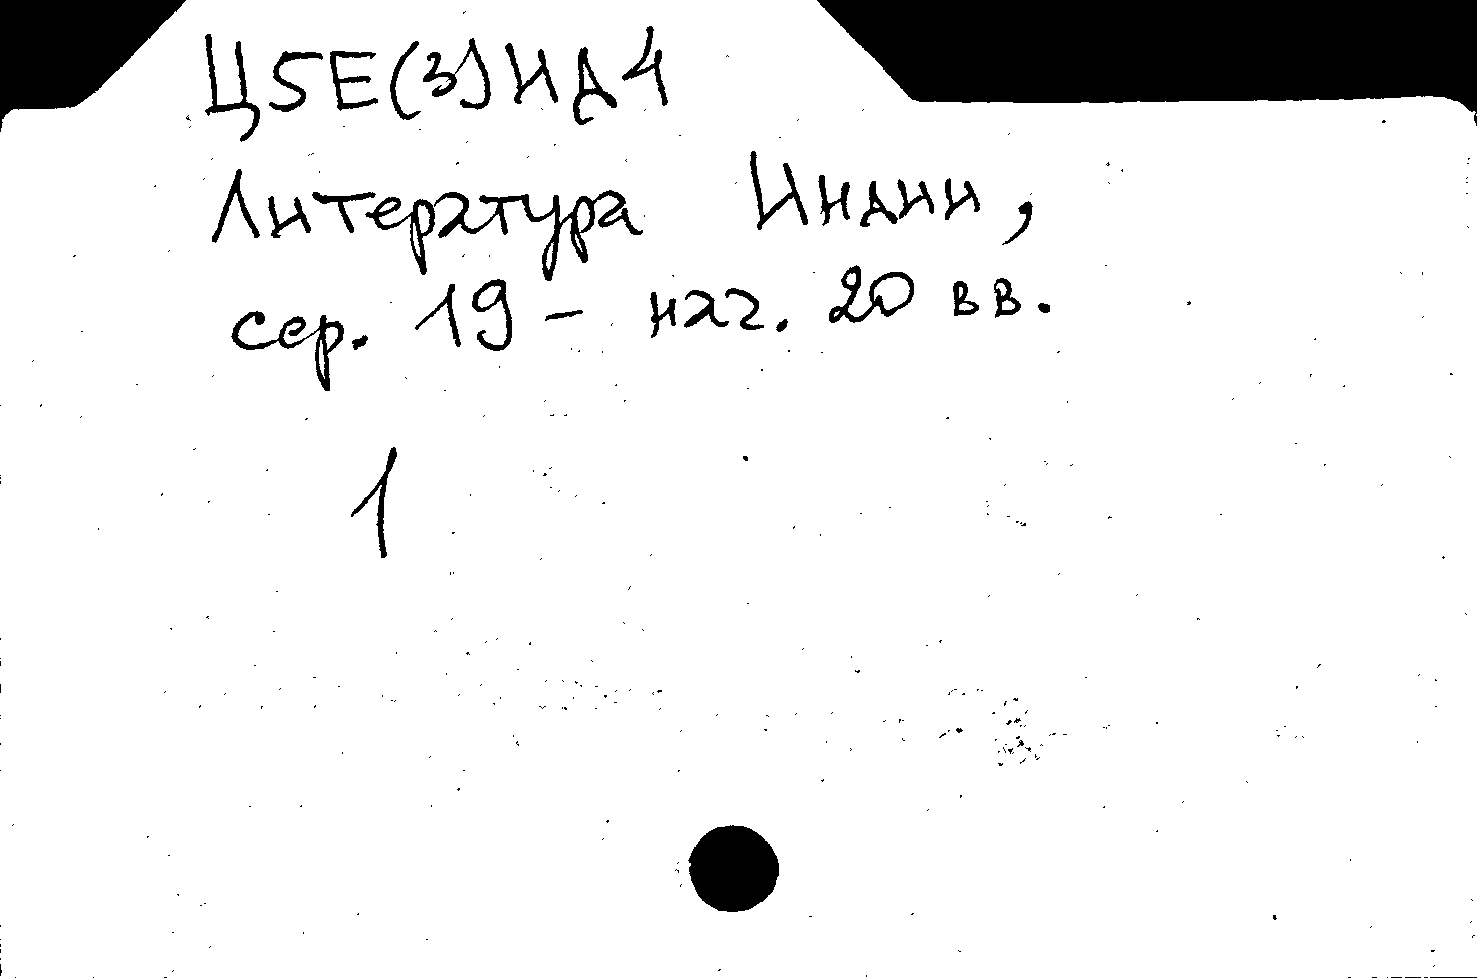 Ц5Е(3)ИД4
Литература Индии,
сер. 19 - нач. 20 вв.
1